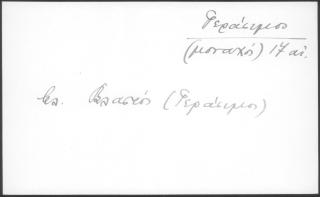 Γεράσιμος
(μοναχός) 17 αι.
βλ. Βλαστός (Γεράσιμος)